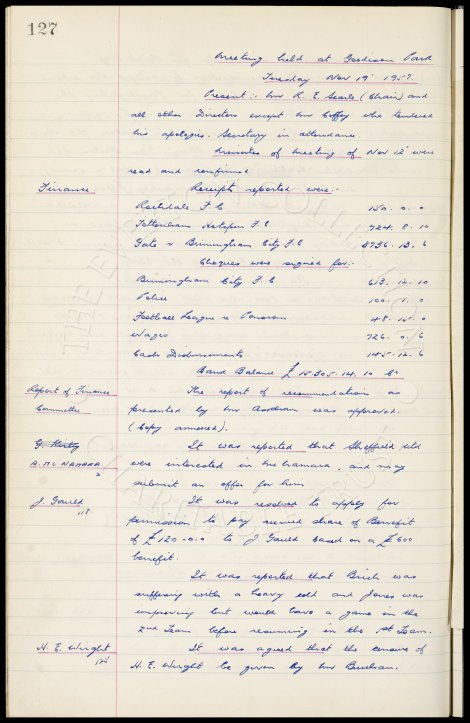 127
Meeting held at Goodison Park
Tuesday Nov 19th 1957.
Present :- Mr R. E. Searle (Chair) and
all other Directors except Mr Coffey who tendered
his apologies. Secretary in attendance
Minutes of meeting of Nov 12th were
read and confirmed
Finance Receipts reported were :-
Rochdale F C 150. 0. 0
Tottenham Hotspur F. C 724. 8. 10
Gate v Birmingham City F. C 3736. 13. 6
Cheques were signed for :-
Birmingham City F. C 613. 12. 10
Police 100. 1. 0
Football League re Panorama 48. 15. 0
Wages 726. 0. 6
Cash Disbursements 145. 12. 6
Bank Balance £ 15.305. 14. 10
Report of Finance The report of recommendations as
Committee presented by Mr was approved.
(Copy annexed).
G. Kirby It was reported that Sheffield Utd
A. Mc NAMARA were interested in McNamara, and may
submit an offer for him
J. Gauld It was resolved to apply for
118 permission to pay accrued share of Benefit
of £120-0-0 to J Gauld based on a £600
benefit.
It was reported that Birch was
suffering with a heavy cold and Jones was
improving but would have a game in the
2nd Team before resuming in the 1st Team.
N. E. Wright It was agreed that the of
N. E. Wright be given by Mr Buchan.
THE EVERTON COLLECTION
CHARITABLE TRUST